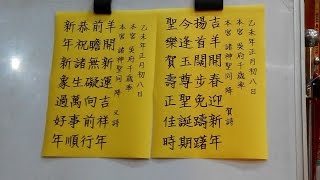 乙未年正月初八日
本宮 吳府千歲 乘
本宮 諸神聖同 降 賀詩
吉羊開春免躊躇
揚首闊步迎新年
今逢玉尊聖誕期
聖樂賀壽正佳時
乙未年正月初八日
本宮 吳府千歲 乘
本宮 諸神聖同 降 又詩
羊開新運吉祥年
前瞻無礙向前行
恭祝諸生萬事順
新年新象過好年